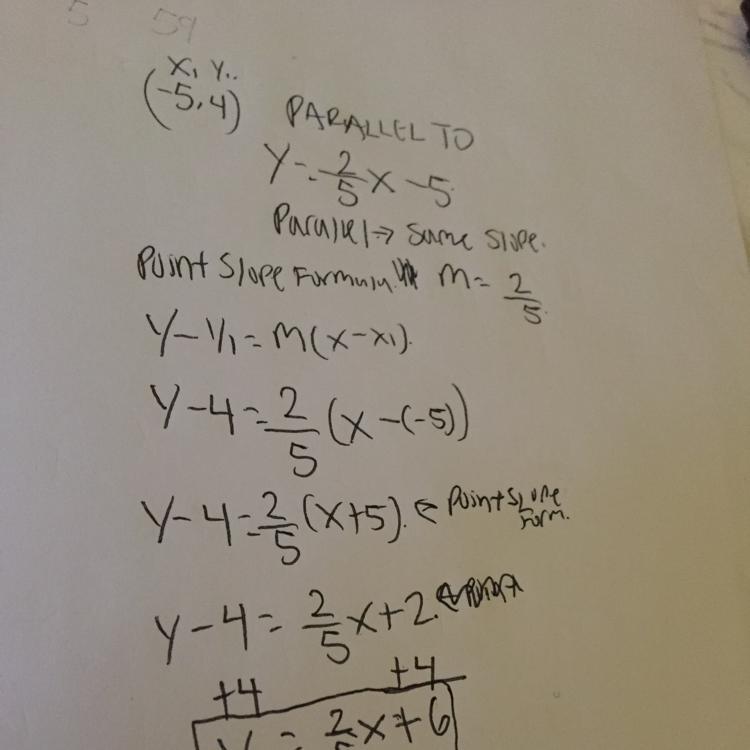 5 59
x₁ y₁.
(-5,4) PARALLEL TO
y = 2/5 x - 5.
Parallel → same slope.
Point Slope Formula m = 2/5.
y - y₁ = m(x - x₁).
y - 4 = 2/5 (x - (-5))
y - 4 = 2/5 (x + 5). ← Point Slope
Form.
y - 4 = 2/5 x + 2. ←
+4 +4
y = 2/5 x + 6